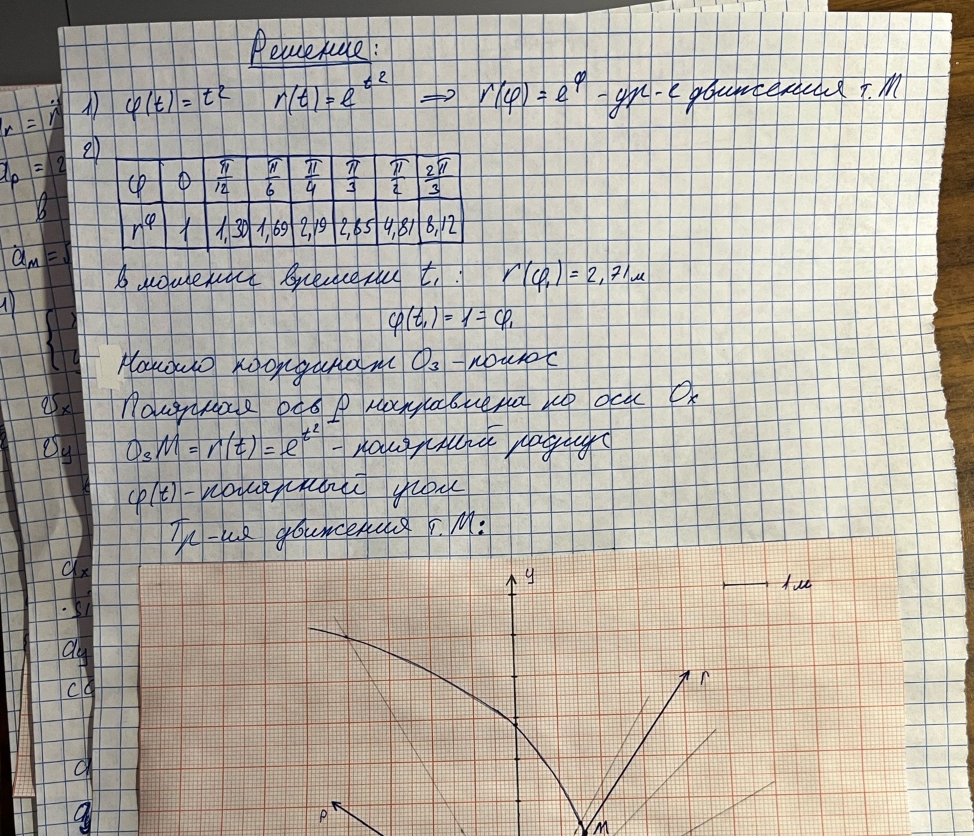 Решение:
1) φ(t) = t² r(t) = e^t² ⇒ r(φ) = e^φ - ур-е движения т. М
2)
φ 0 π/12 π/6 π/4 π/3 π/2 2π/3
r^φ 1 1,30 1,69 2,19 2,85 4,81 8,12
в момент времени t₁ : r(φ₁) = 2,71м
φ(t₁) = 1 = φ₁
Начало координат O₃ - полюс
Полярная ось P направлена по оси Oₓ
O₃M = r(t) = e^t² - полярный радиус
φ(t) - полярный угол
Тр-ия движения т. М:
y
1 м
r
P
M